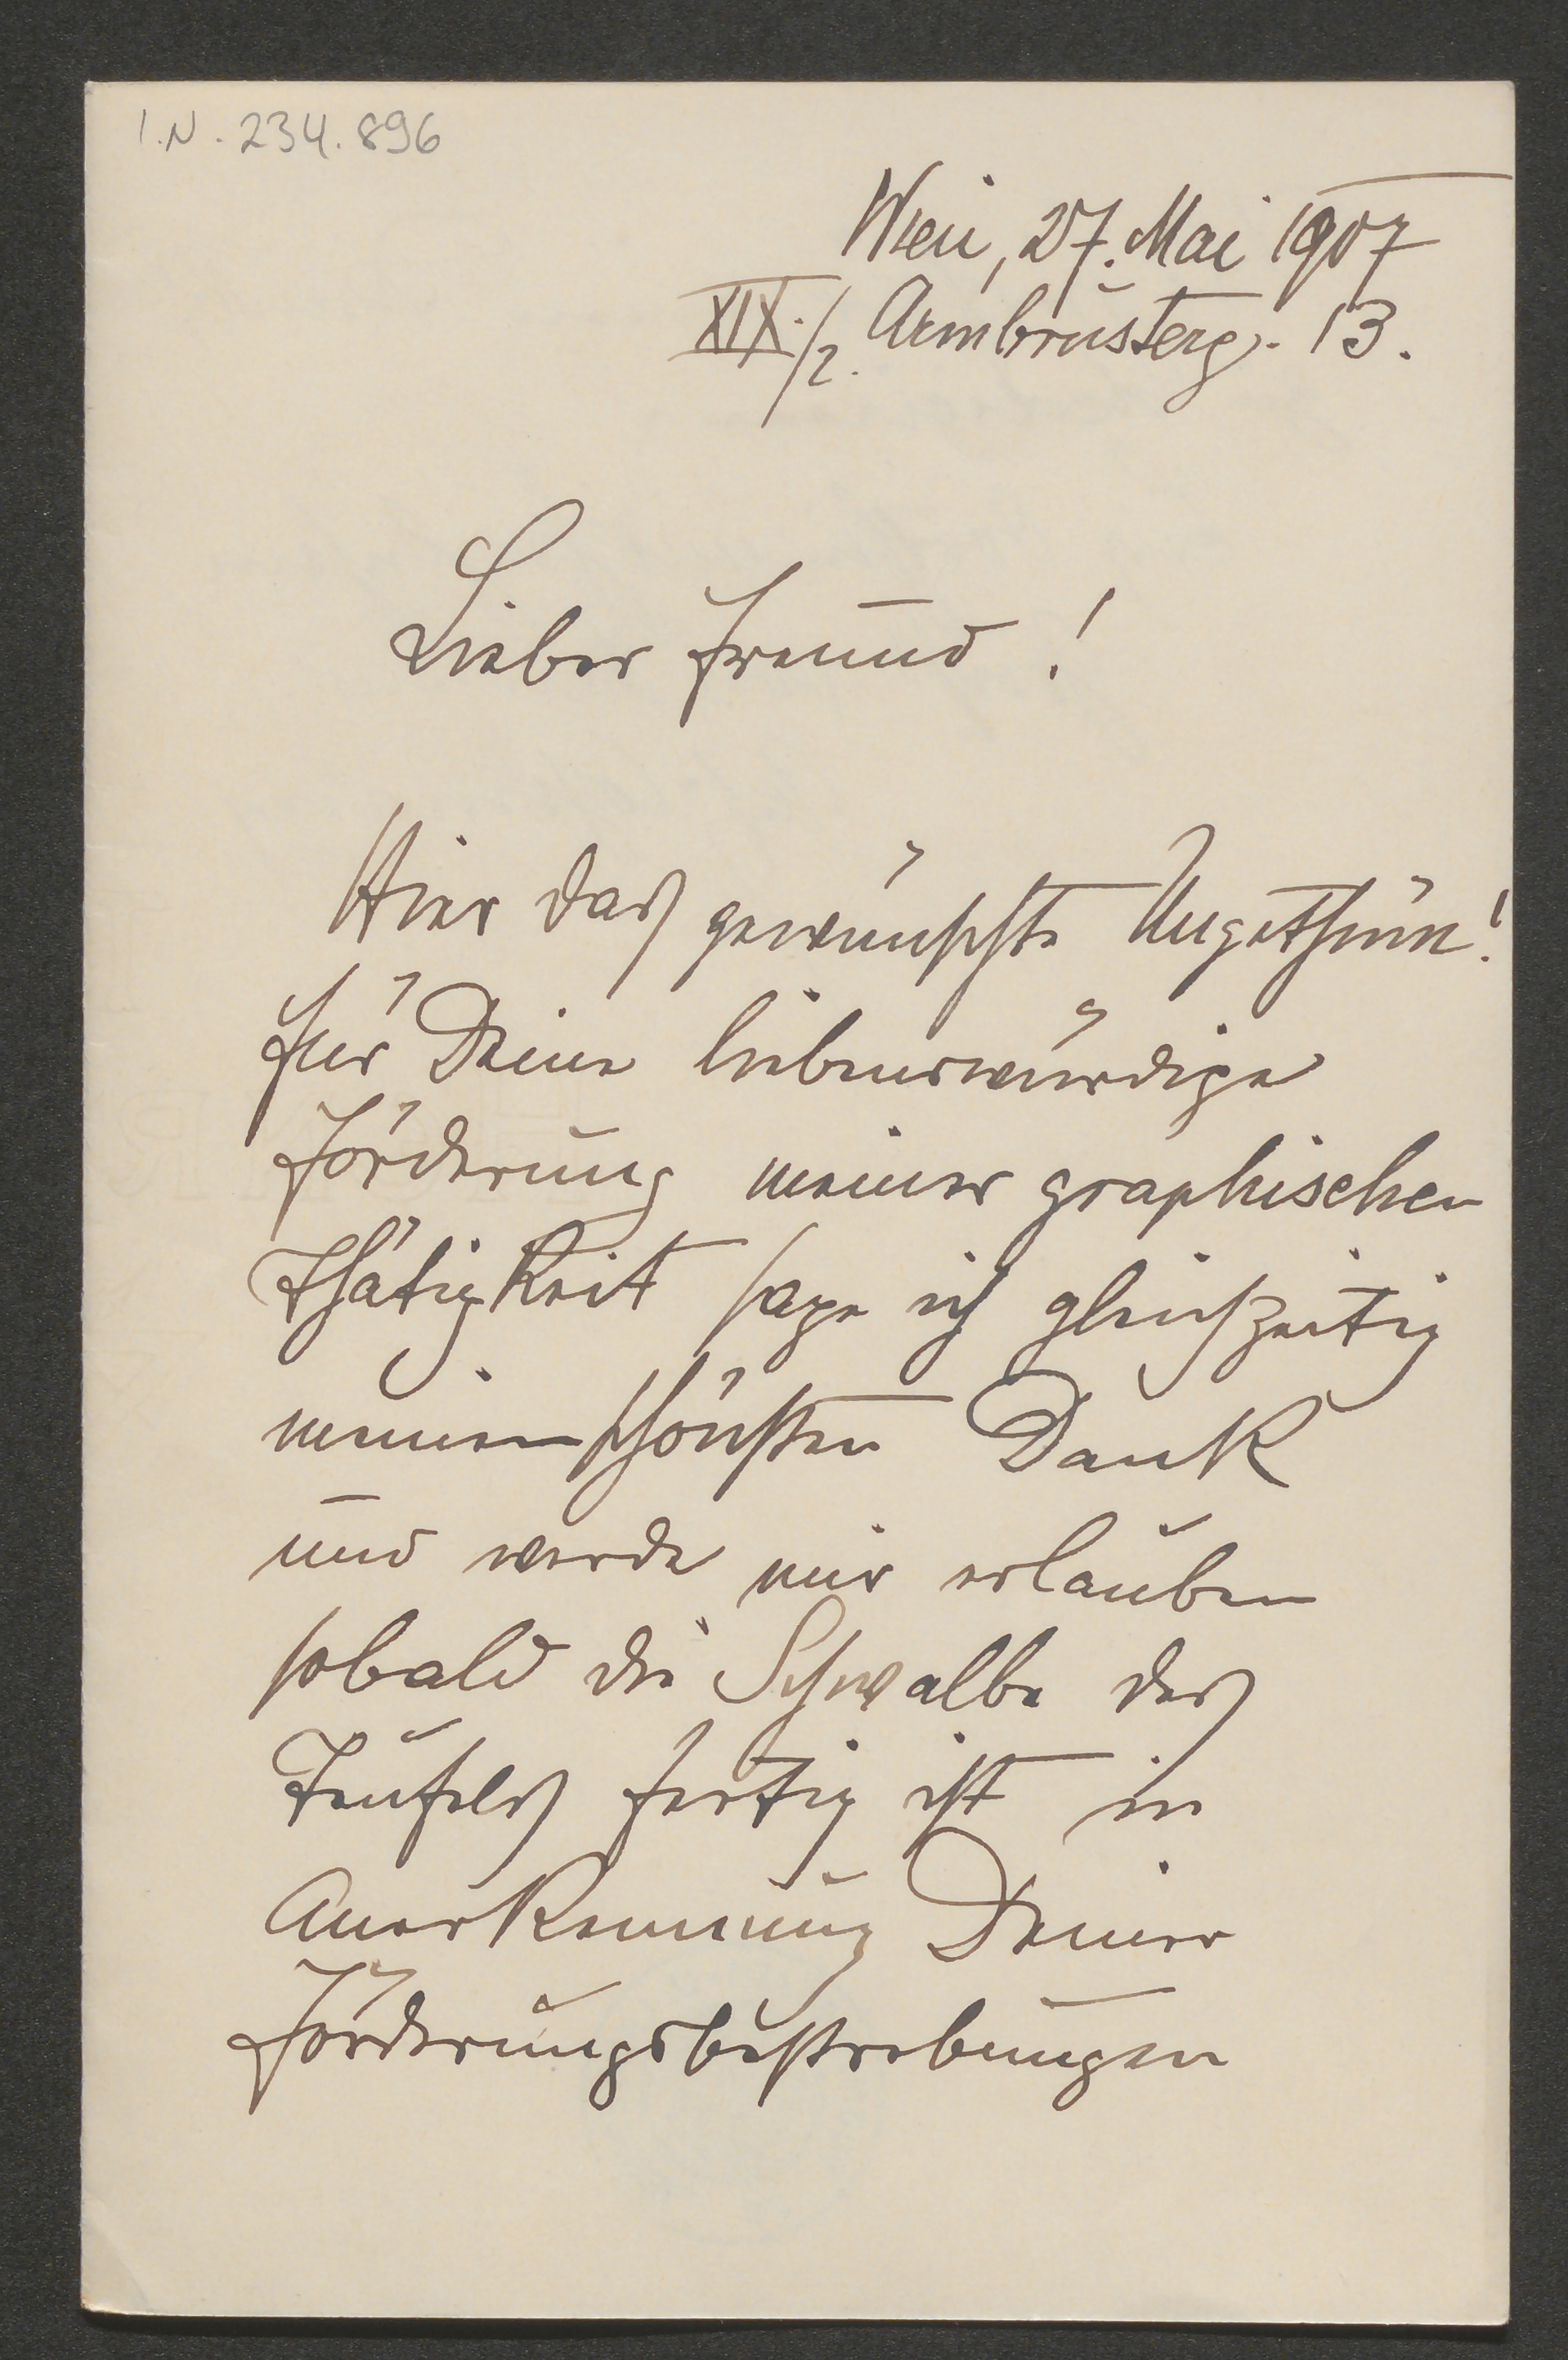 I.N. 234.896
Wien, 27. Mai 1907
XIX./2. Armbrusterg. 13.
Lieber Freund!
Hier das gewünschte Ungethüm!
für Deine liebenswürdige
Förderung meiner graphischen
Thätigkeit sage ich gleichzeitig
meinen schönsten Dank
und werde mir erlauben
sobald die Schwalbe des
Teufels fertig ist in
Anerkennung Deiner
Förderungsbestrebungen